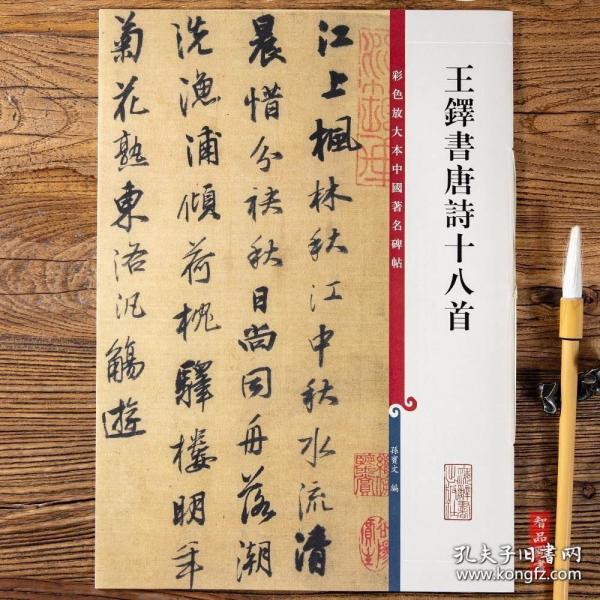 王鐸書唐詩十八首
彩色放大本中國著名碑帖
孫寶文 編
江上楓林秋江中秋水流清
晨惜分袂秋日尚同舟落潮
洗漁浦傾荷枕驛樓明年
菊花熟東洛汎觴遊
智品
孔夫子旧书网
www.kongfz.com